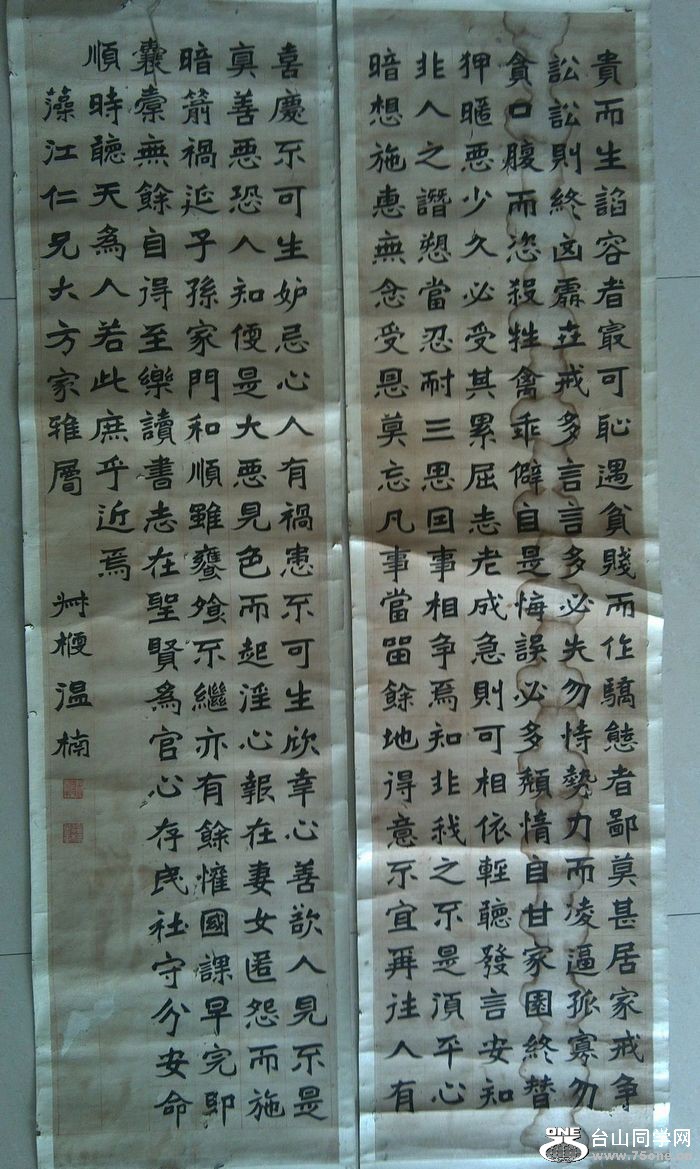 貴而生諂容者最可恥遇貧賤而作驕態者鄙莫甚居家戒爭
訟訟則終凶處世戒多言言多必失勿恃勢力而凌逼孤寡勿
貪口腹而恣殺牲禽乖僻自是悔誤必多頽惰自甘家園終替
狎暱惡少久必受其累屈志老成急則可相依輕聽發言安知
非人之譖愬當忍耐三思因事相爭焉知非我之不是湏平心
暗想施惠無念受恩莫忘凡事當留餘地得意不宜再往人有
喜慶不可生妒忌心人有禍患不可生欣幸心善欲人見不是
真善惡恐人知便是大惡見色而起淫心報在妻女匿怨而施
暗箭禍延子孫家門和順雖饔飧不繼亦有餘懽國課早完即
囊橐無餘自得至樂讀書志在聖賢為官心存民社守分安命
順時聽天為人若此庶乎近焉
藻江仁兄大方家雅屬
溫楠
ONE
台山同学网
www.75one.com